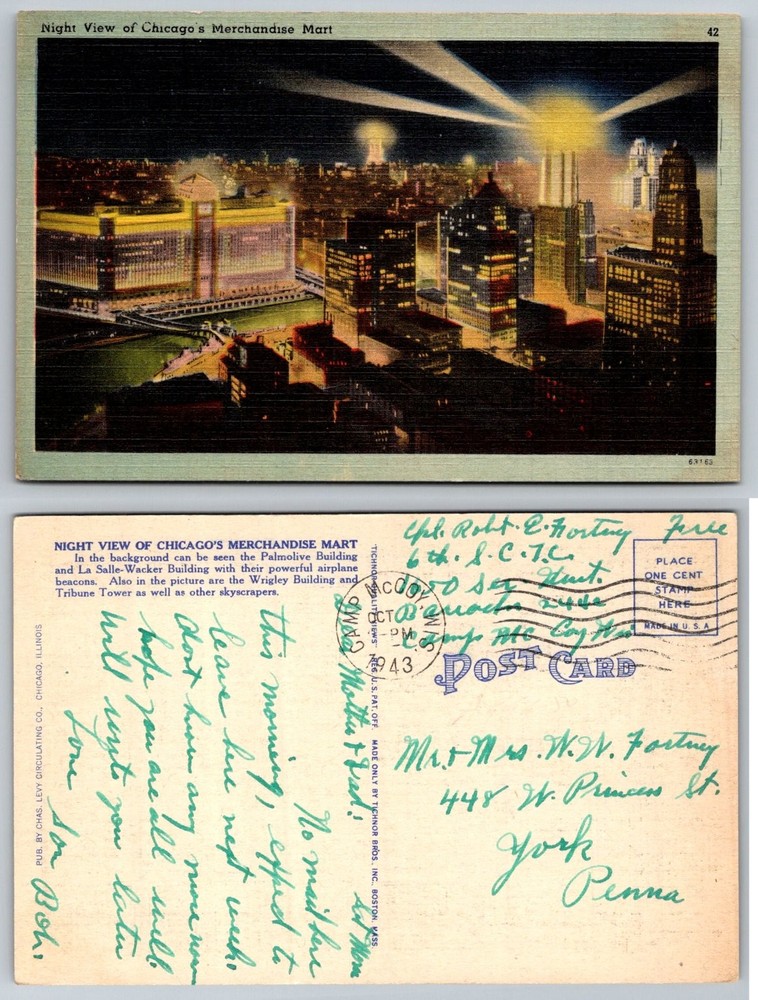 Night View of Chicago's Merchandise Mart
42
63165
NIGHT VIEW OF CHICAGO'S MERCHANDISE MART
In the background can be seen the Palmolive Building
and La Salle-Wacker Building with their powerful airplane
beacons. Also in the picture are the Wrigley Building and
Tribune Tower as well as other skyscrapers.
PUB. BY CHAS. LEVY CIRCULATING CO., CHICAGO, ILLINOIS
"TICHNOR QUALITY VIEWS" REG. U. S. PAT. OFF. MADE ONLY BY TICHNOR BROS., INC. BOSTON, MASS.
Cpl. Robt. E. Fortney Free
6th. S.C.T.C.
Ser
Barracks
Camp Mc Coy Wis
CAMP McCOY
OCT
PM
1943
WIS
PLACE
ONE CENT
STAMP
HERE
MADE IN U. S. A.
POST CARD
Mr. & Mrs. W. W. Fortney
448 W. Princess St.
York
Penna
Dear Mother & Dad:
No mail here
this morning, expect to
leave here next week.
dont hear any more now
hope you are all well.
will write you later
Your Son Bob.